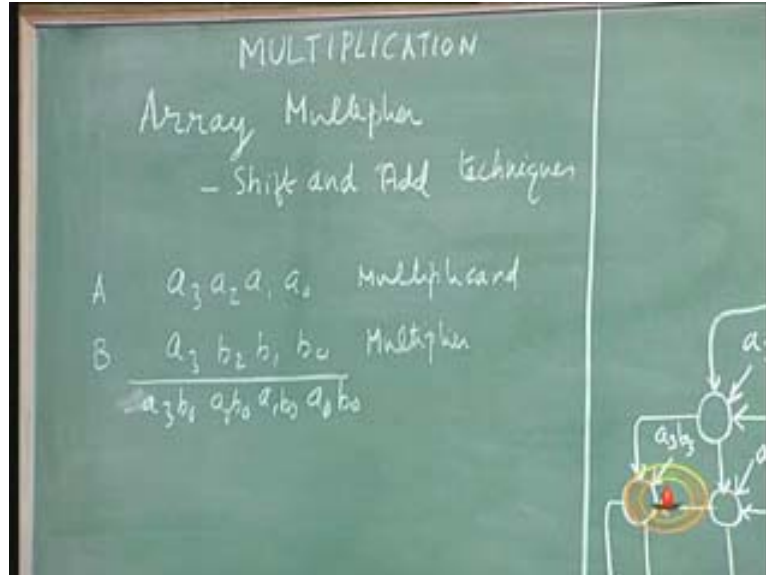 MULTIPLICATION
Array Multiplier
- Shift and Add techniques
A a₃ a₂ a₁ a₀ Multiplicand
B a₃ b₂ b₁ b₀ Multiplier
a₃b₀ a₂b₀ a₁b₀ a₀b₀
a₃b₃